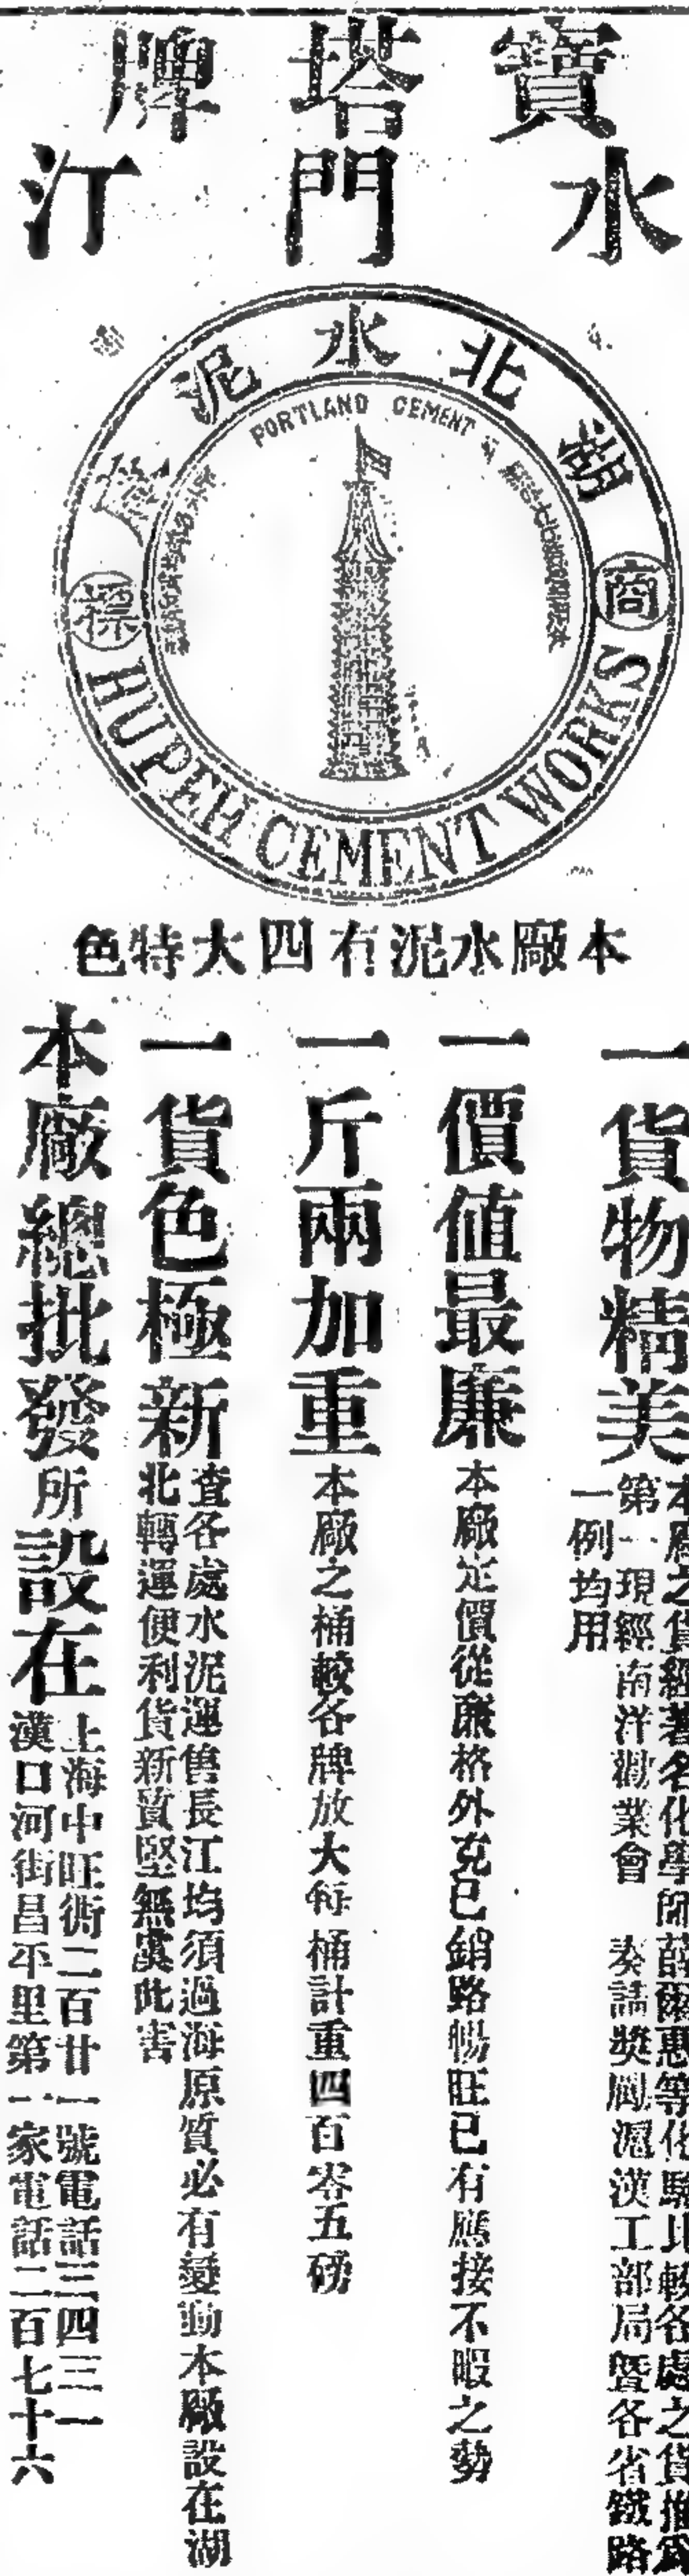 寶塔牌
水門汀
湖北水泥廠
商標
PORTLAND CEMENT
HUPEH CEMENT WORKS
本廠水泥有四大特色
一貨物精美
本廠之貨經著名化學師薛爾惠等化驗比較各處之貨推為
第一現經南洋勸業會 奏請獎勵滬漢工部局暨各省鐵路
一例均用
一價值最廉
本廠定價從廉格外克己銷路暢旺已有應接不暇之勢
一斤兩加重
本廠之桶較各牌放大每桶計重四百零五磅
一貨色極新
查各處水泥運售長江均須過海原質必有變動本廠設在湖
北轉運便利貨新質堅無虞此害
本廠總批發所設在
上海中旺衖二百廿一號電話三四三一
漢口河街昌平里第一家電話二百七十六